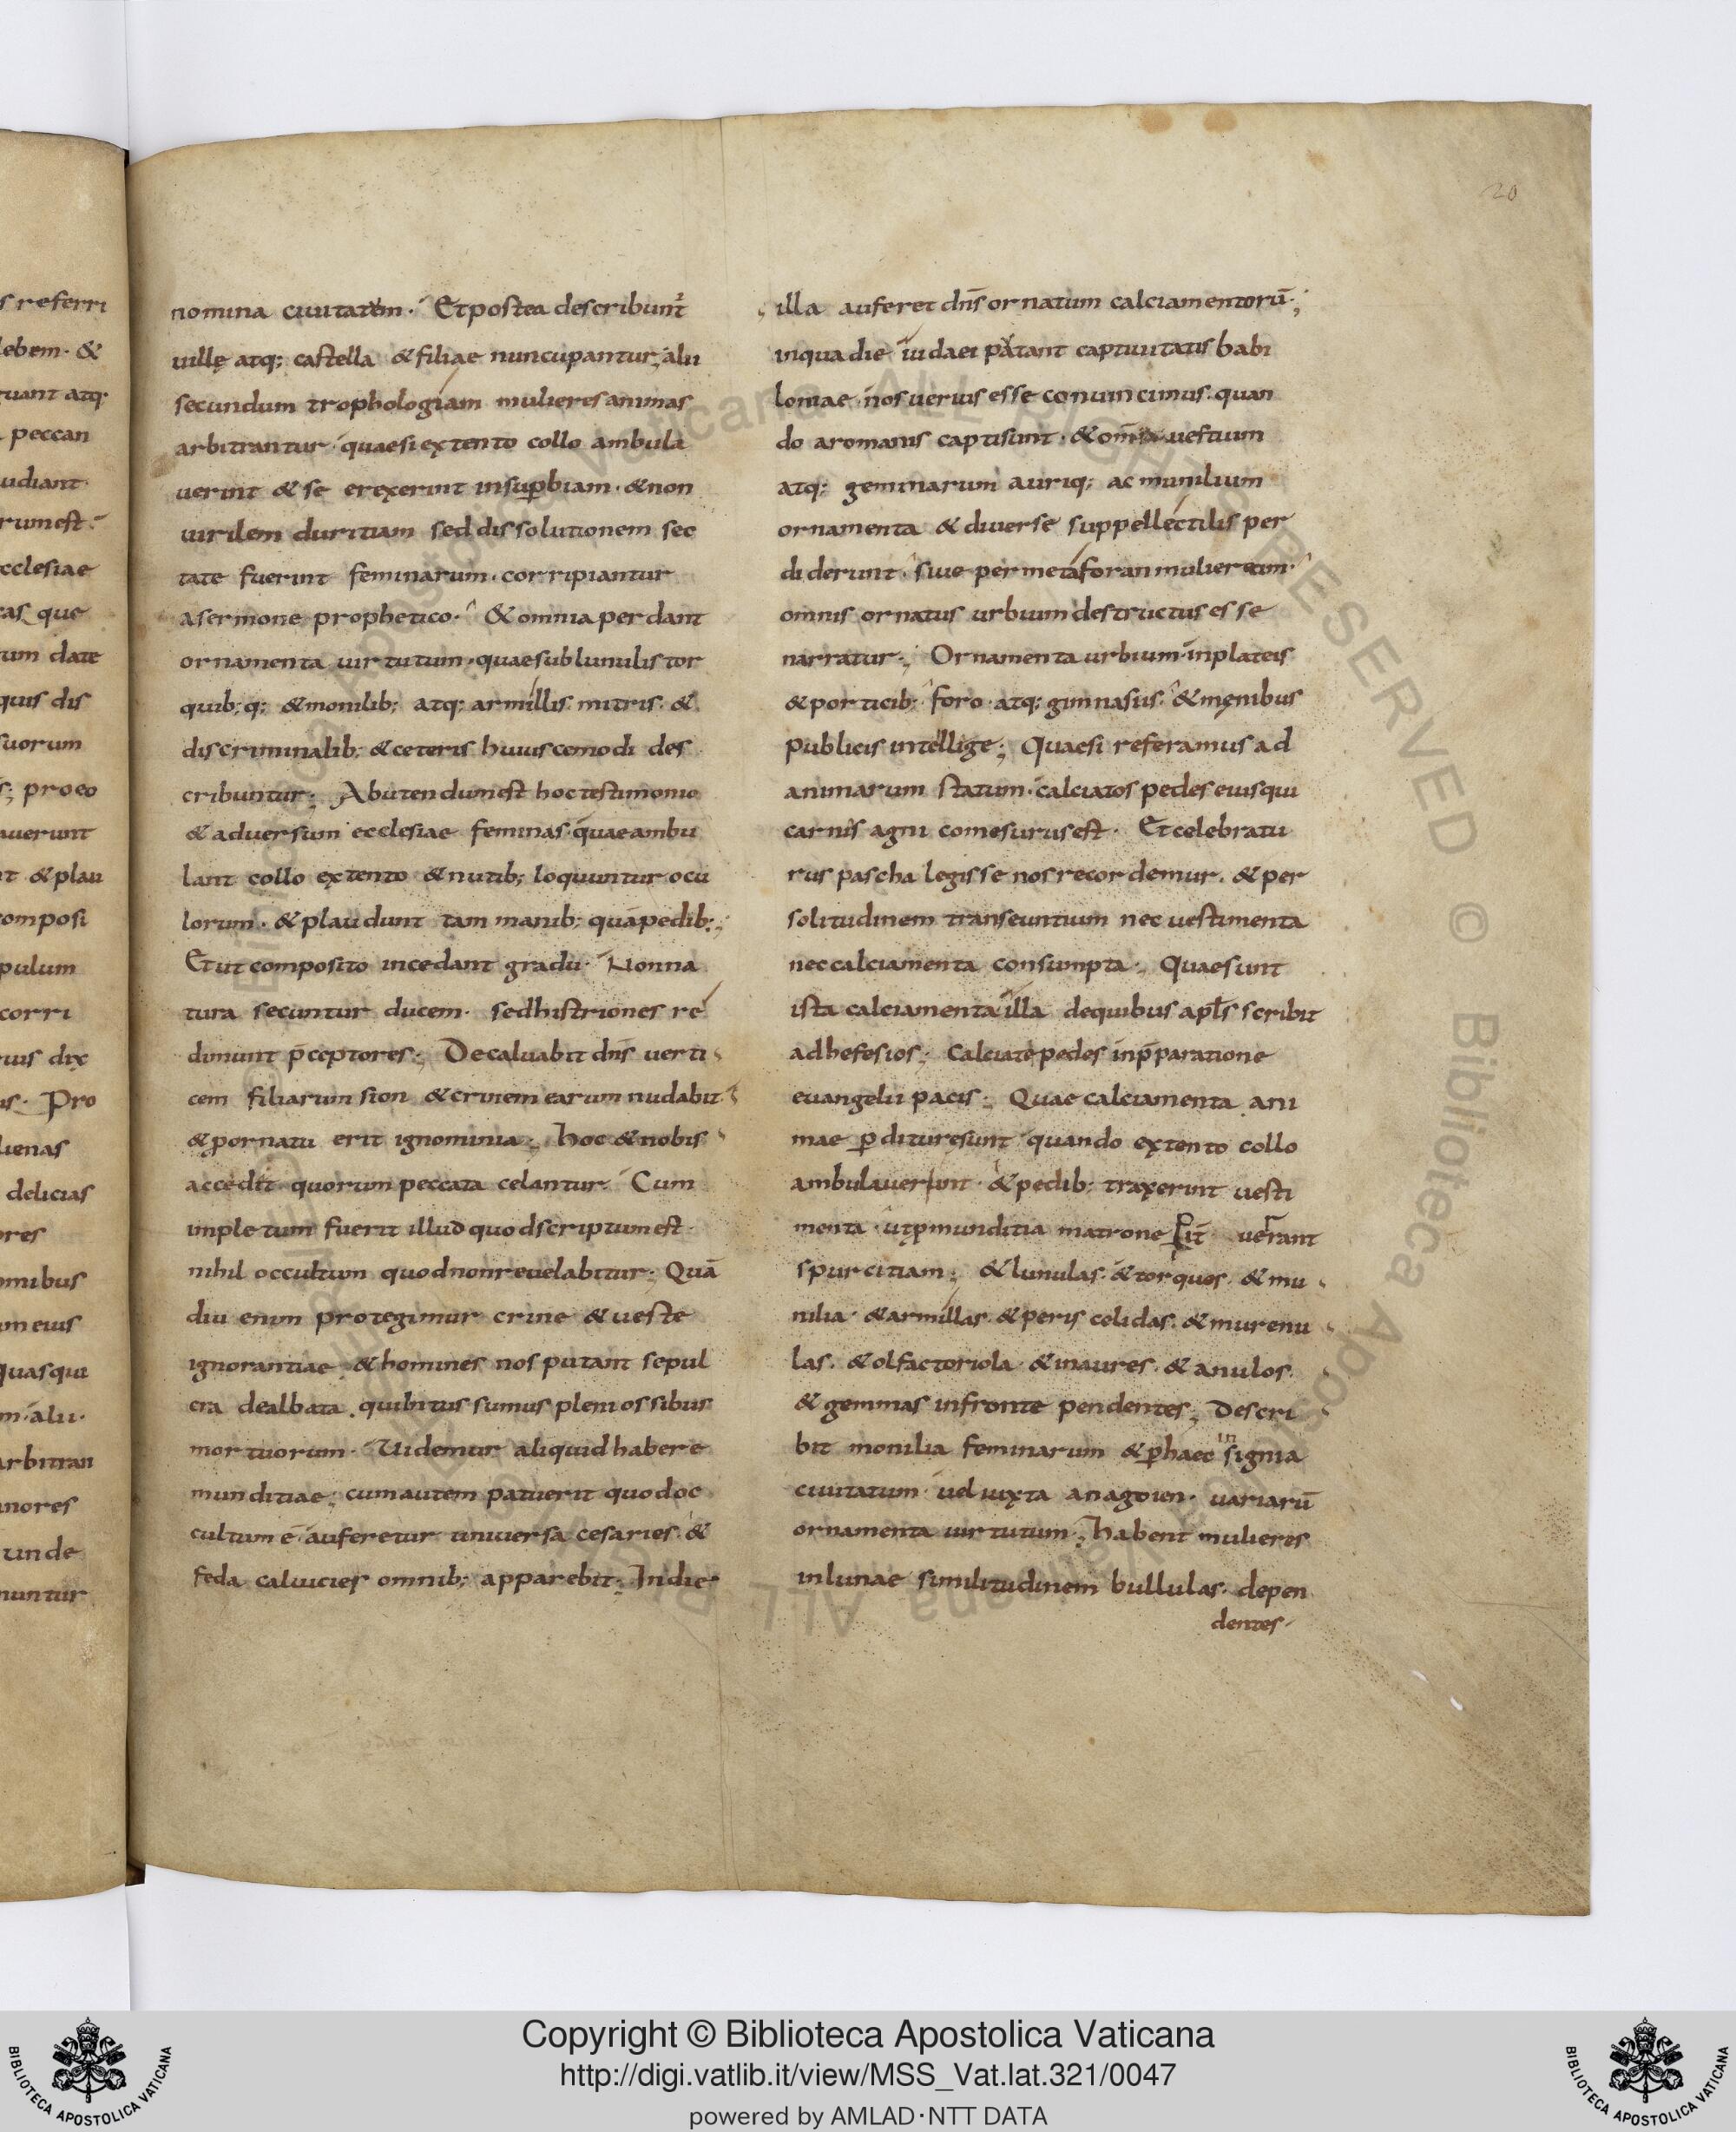 20
s referri
lebem· &
quant atq·
peccan
udiant
rumest·
cclesiae
as que
tum date
quis dis
suorum
s; proeo
auerunt
nt &plau
composi
pulum
corri
ruis dix
us· Pro
lienas
delicias
ores
omnibus
um eius
quasqui
m· alii·
arbitran
nores
unde
nuntur
nomina ciuitatem· Etpostea describunt
uille atq; castella &filiae nuncupantur, alii
secundum trophologiam mulieres animas
arbitrantur· quaesi extento collo ambula
uerint &se erexerint insupbiam· &non
uirilem duritiam sed dissolutionem sec
tate fuerint feminarum· corripiantur
asermone prophetico· &omnia perdant
ornamenta uirtutum· quaesublunulis tor
quib; q; &monilib; atq; armillis mitris· &
discriminalib; &ceteris huiuscemodi des
cribuntur; Abutendumest hoctestimonio
&aduersum ecclesiae feminas· quaeambu
lant collo extento &nutib; loquuntur ocu
lorum· &plaudunt tam manib; quāpedib;
Etut composito incedant gradu· Nonna
tura secuntur ducem· sedhistriones re
dimunt p̄ceptores; Decaluabit dn̄s uerti
cem filiarum sion &crinem earum nudabit
&pornatu erit ignominia; hoc &nobis
accedit quorum peccata celantur· Cum
impletum fuerit illud quodscriptumest·
nihil occultum quodnonreuelabitur; Quā
diu enim protegimur crine &ueste
ignorantiae· &homines nos putant sepul
cra dealbata· quibitus sumus pleni ossibus
mortuorum· Uidemur aliquid habere
munditiae; cumautem patuerit quodoc
cultum ē· auferetur uniuersa cesaries· &
feda caluicies omnib; apparebit; Indie
illa auferet dn̄s ornatum calciamentorū;
inqua die iudaei patant captiuitatis babi
loniae· nos uerius esse conuincimus· quan
do aromanis captisunt· &omnia uestium
atq; gemmarum auriq; ac munilium
ornamenta &diuerse suppellectilis per
diderunt· siue permetaforan mulierum·
omnis ornatus urbium destructus esse
narratur; Ornamenta urbium· inplateis
&porticib; foro· atq; gimnasiis· &menibus
publicis intellige; Quaesi referamus ad
animarum statum· calciatos pedes eiusqui
carnis agni comesurusest· Etcelebratu
rus pascha legisse nos recordemur· &per
solitudinem transeuntium nec uestimenta
neccalciamenta consumpta; Quaesunt
ista calciamenta illa dequibus apl̄s scribit
adhefesios; Calciatepedes inp̄paratione
euangelii pacis; Quae calciamenta ani
mae pdituresunt quando extento collo
ambulauerunt· &pedib; traxerint uesti
menta· utpmunditia matrone
spurcitiam; &lunulas· &torques· &mu
nilia· &armillas· &peris celidas· &murenu
las· &olfactoriola &inaures· &anulos·
&gemmas infronte pendentes; Descri
bit monilia feminarum &phaec insignia
ciuitatum· uel iuxta anagogen· uariarū
ornamenta uirtutum; habent mulieres
inlunae similitudinem bullulas· depen
dentes·
Copyright © Biblioteca Apostolica Vaticana
http://digi.vatlib.it/view/MSS_Vat.lat.321/0047
powered by AMLAD·NTT DATA
BIBLIOTECA APOSTOLICA VATICANA
BIBLIOTECA APOSTOLICA VATICANA